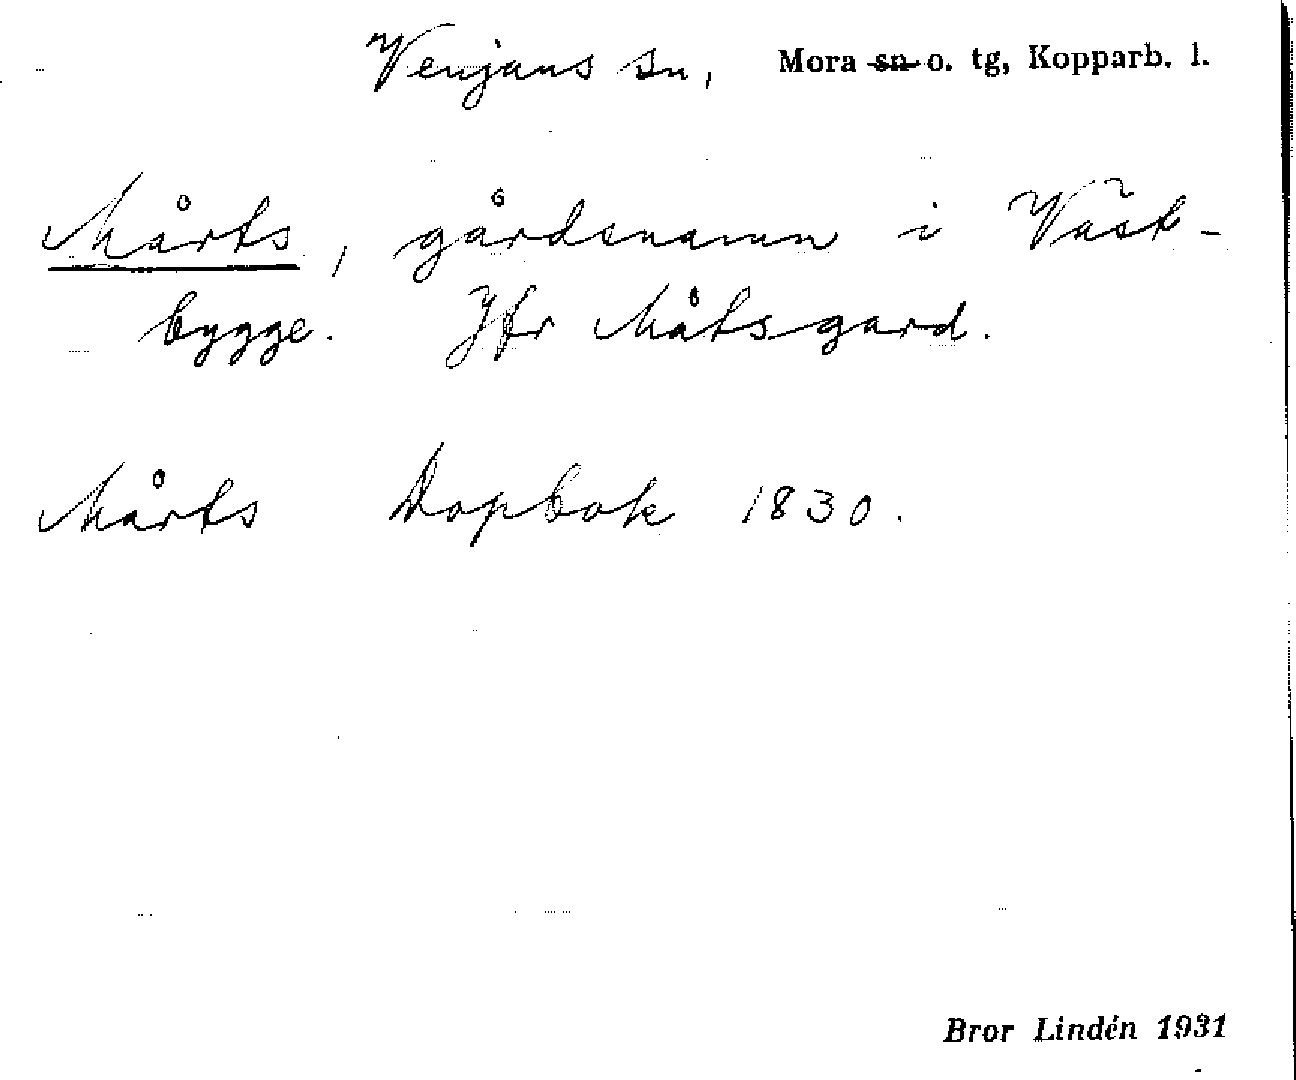 Venjans sn, Mora sn o. tg, Kopparb. l.
Mårts, gårdsnamn i Väst-
bygge. Jfr Måtsgard.
Mårts Dopbok 1830.
Bror Lindén 1931